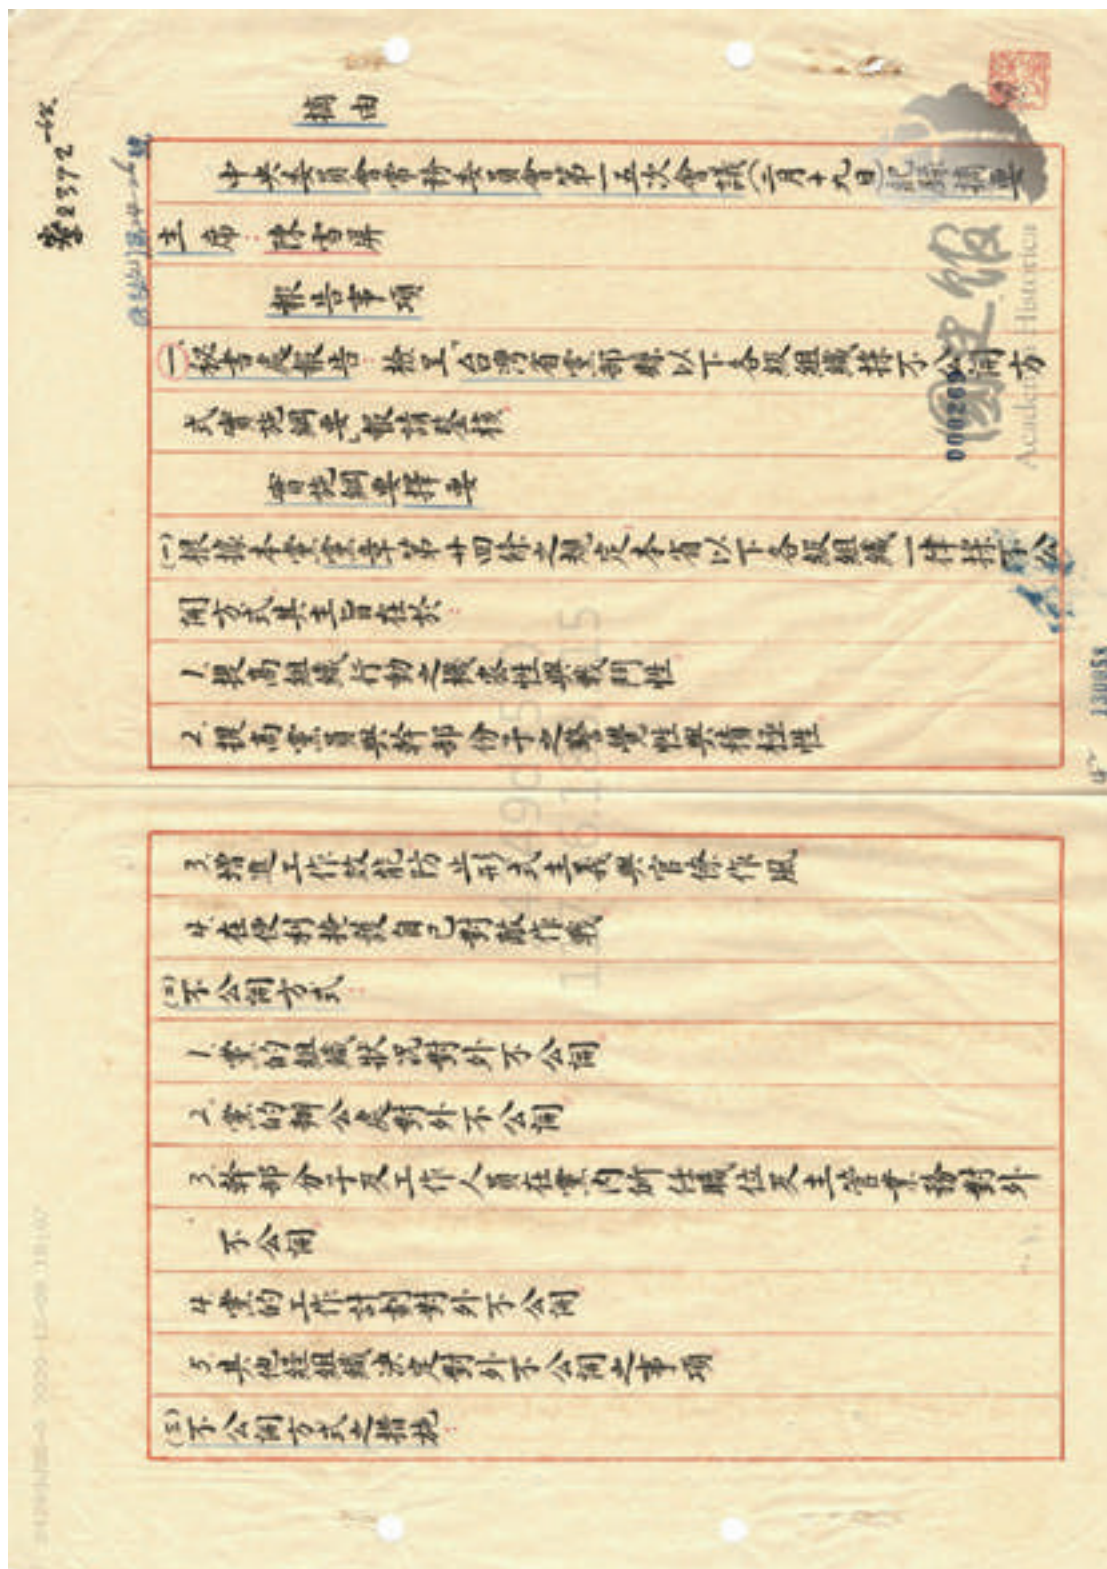 摘由
中央委員會常務委員會第一五次會議(二月十九日)紀錄摘要
主席：陳雪屏
報告事項
一、秘書處報告：檢呈「台灣省黨部縣以下各級組織採不公開方
式實施綱要」報請鑒核
實施綱要擇要
(一)根據本黨黨章第廿四條之規定本省以下各級組織一律採不公
開方式其主旨在於：
1.提高組織行動之機密性與戰鬥性
2.提高黨員與幹部份子之警覺性與積極性
3.增進工作效能防止形式主義與官僚作風
4.在便利掩護自己對敵作戰
(二)不公開方式：
1.黨的組織狀況對外不公開
2.黨的辦公處對外不公開
3.幹部分子及工作人員在黨內所任職位及主管業務對外
不公開
4.黨的工作計劃對外不公開
5.其他經組織決定對外不公開之事項
(三)不公開方式之措施：
國史館
Academia Historica
000269
130054